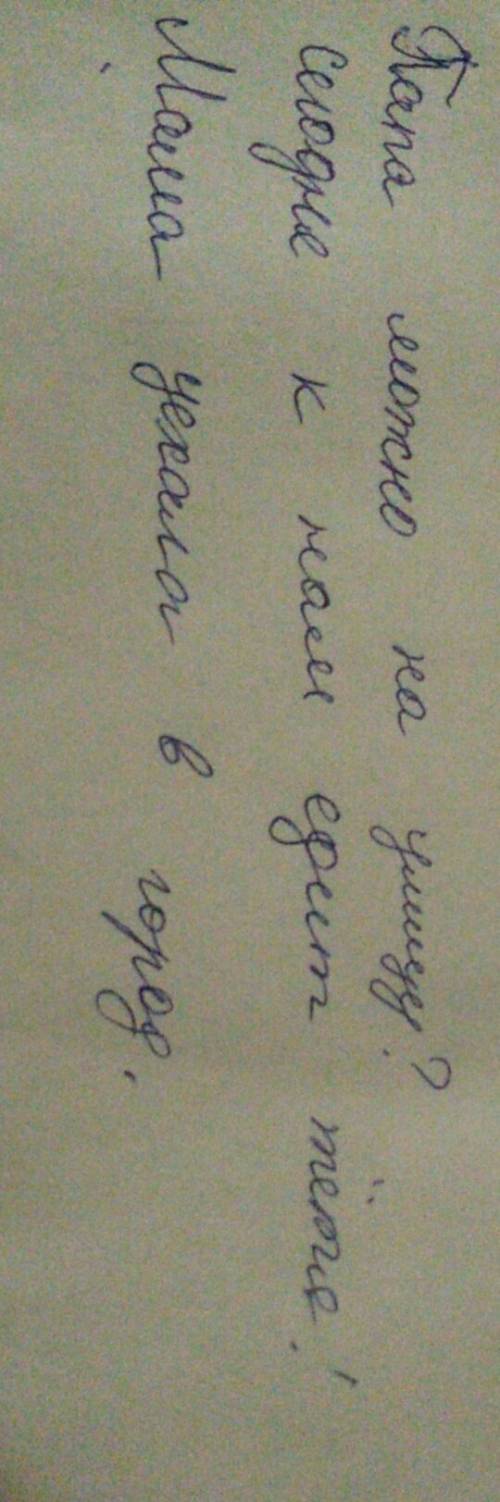 Папа можно на улицу?
Сегодня к нам едит тётя!
Мама уехала в город.